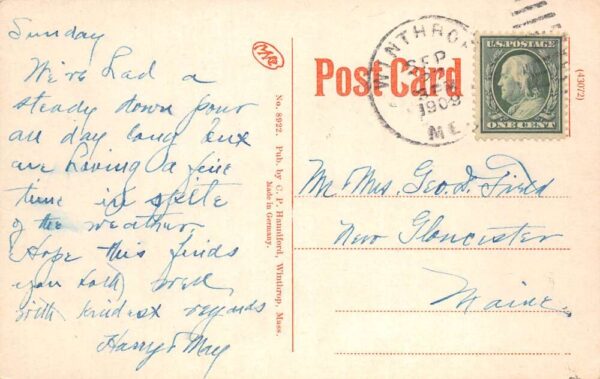 Sunday
We're had a
steady down pour
all day long but
are having a fine
time in spite
of the weather.
Hope this finds
you both well
with kindest regards
Harry & May
No. 8922. Pub. by C. P. Hunniford, Winthrop, Mass.
Made in Germany.
Post Card
WINTHROP
SEP
1909
ME.
U.S.POSTAGE
ONE CENT
(43072)
Mr Mrs. Geo. D. Field
New Gloucester
Maine.